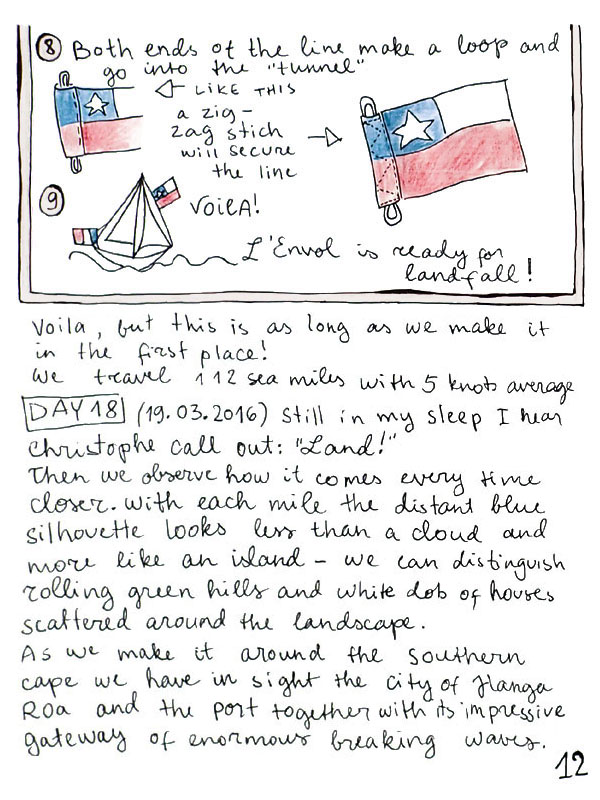 8 Both ends of the line make a loop and
go into the "tunnel"
LIKE THIS
a zig-
zag stich
will secure
the line
9
VOILA!
L'Envol is ready for
landfall!
Voila, but this is as long as we make it
in the first place!
We travel 112 sea miles with 5 knots average
DAY 18 (19.03.2016) Still in my sleep I hear
Christophe call out: "Land!"
Then we observe how it comes every time
closer. With each mile the distant blue
silhouette looks less than a cloud and
more like an island - we can distinguish
rolling green hills and white dots of houses
scattered around the landscape.
As we make it around the southern
cape we have in sight the city of Hanga
Roa and the port together with its impressive
gateway of enormous breaking waves.
12